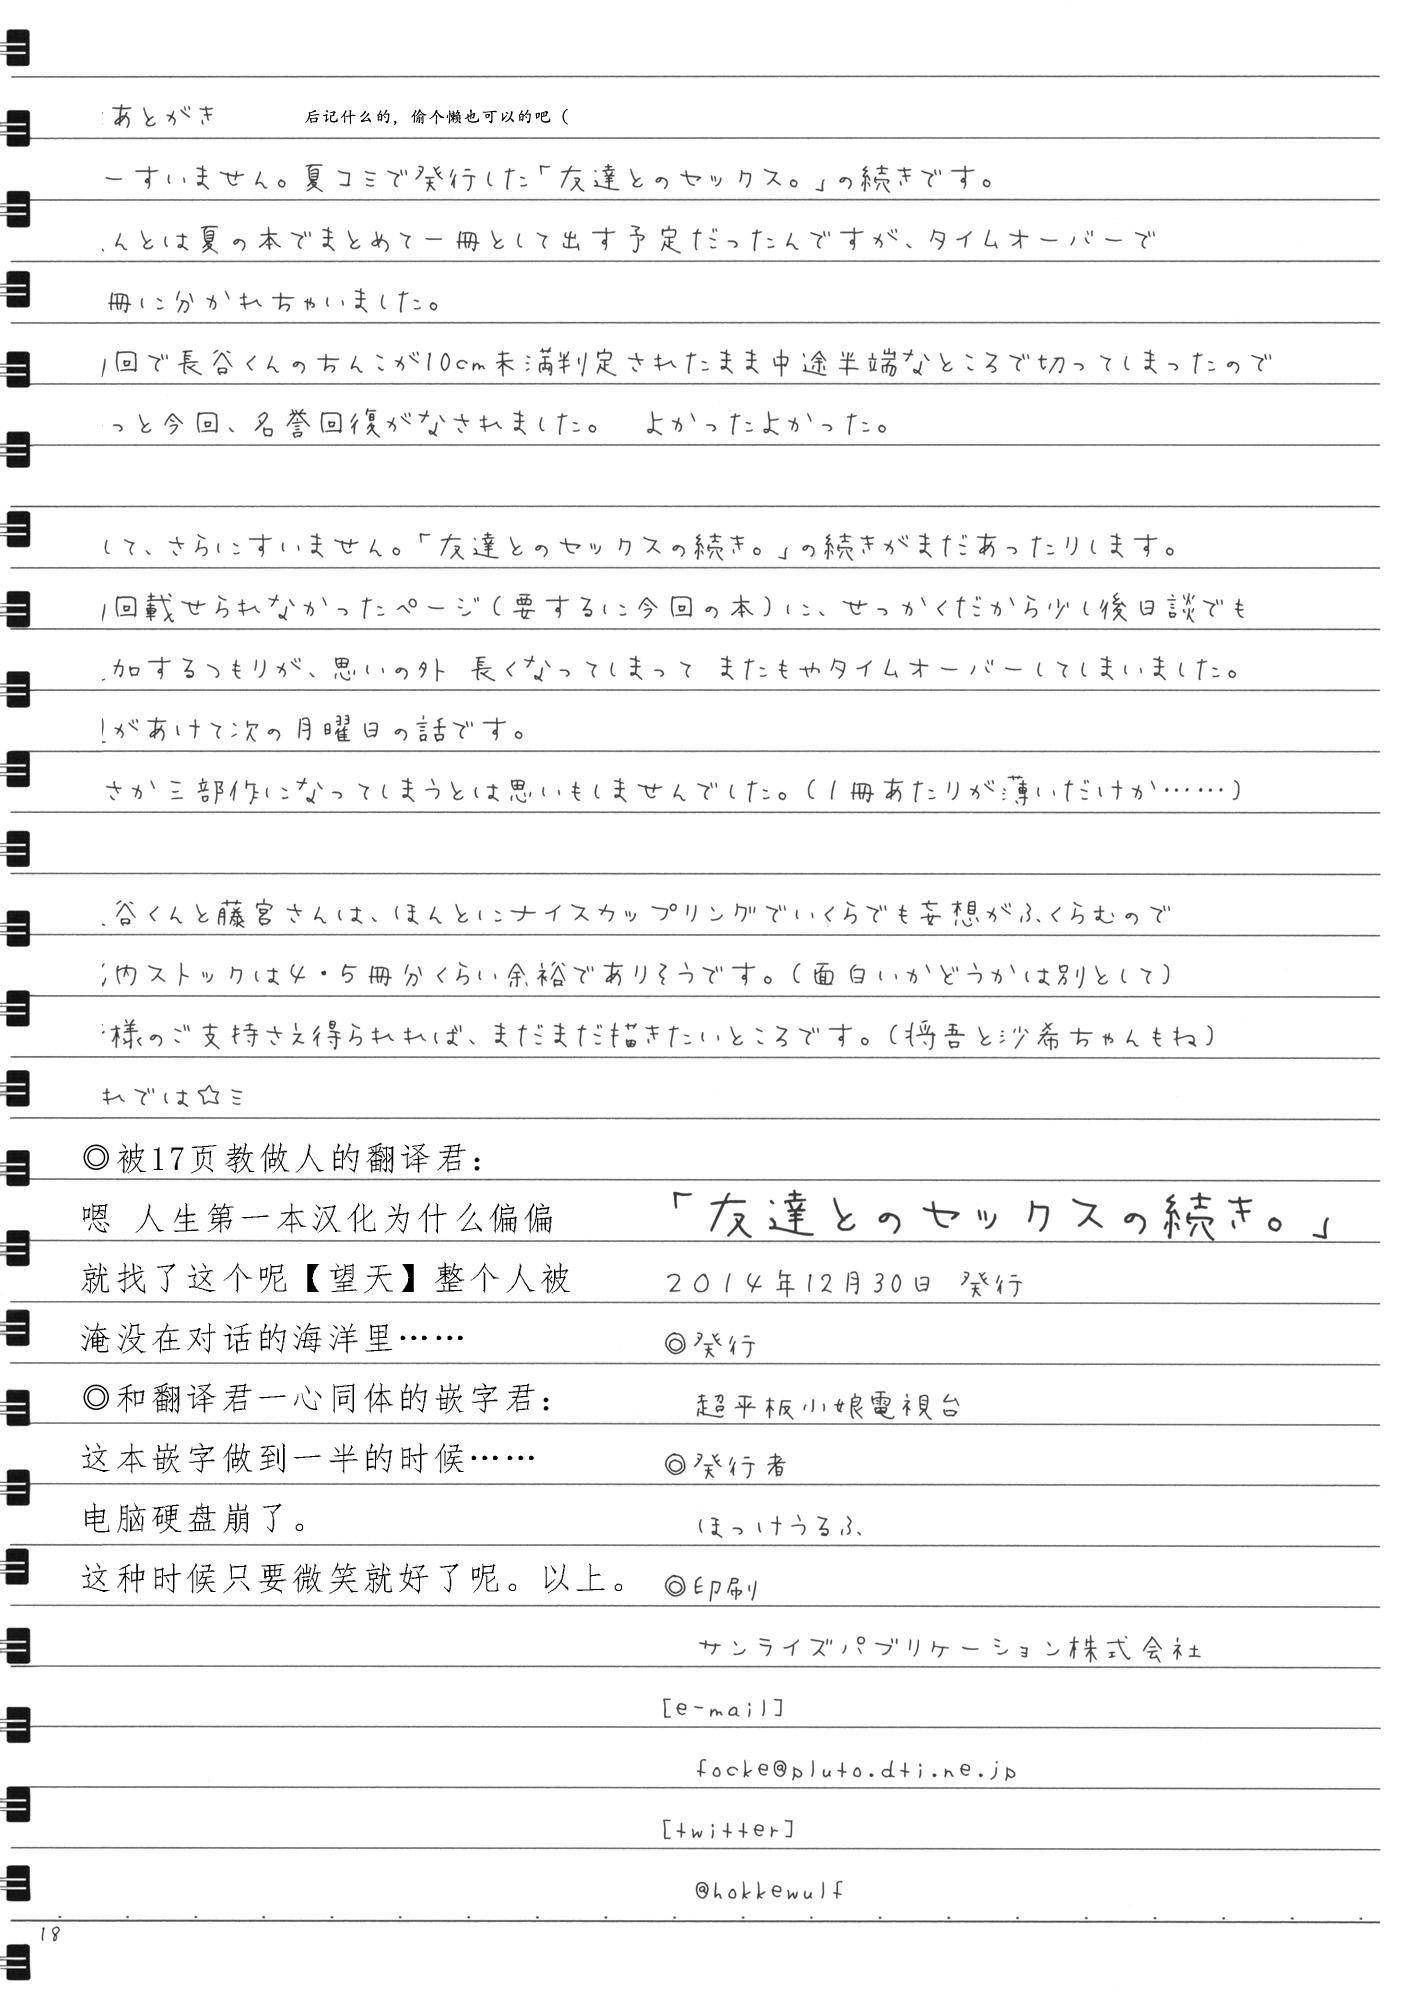 あとがき 后记什么的，偷个懒也可以的吧（
ーすいません。夏コミで発行した「友達とのセックス。」の続きです。
んとは夏の本でまとめて一冊として出す予定だったんですが、タイムオーバーで
冊に分かれちゃいました。
回で長谷くんのちんこが10cm未満判定されたまま中途半端なところで切ってしまったので
っと今回、名誉回復がなされました。 よかったよかった。
して、さらにすいません。「友達とのセックスの続き。」の続きがまだあったりします。
回載せられなかったページ(要するに今回の本)に、せっかくだから少し後日談でも
加するつもりが、思いの外 長くなってしまって またもやタイムオーバーしてしまいました。
があけて次の月曜日の話です。
さか三部作になってしまうとは思いもしませんでした。(1冊あたりが薄いだけか……)
谷くんと藤宮さんは、ほんとにナイスカップリングでいくらでも妄想がふくらむので
内ストックは4・5冊分くらい余裕でありそうです。(面白いかどうかは別として)
様のご支持さえ得られれば、まだまだ描きたいところです。(将吾と沙希ちゃんもね)
れでは☆ミ
◎被17页教做人的翻译君：
嗯 人生第一本汉化为什么偏偏
就找了这个呢【望天】整个人被
淹没在对话的海洋里……
◎和翻译君一心同体的嵌字君：
这本嵌字做到一半的时候……
电脑硬盘崩了。
这种时候只要微笑就好了呢。以上。
「友達とのセックスの続き。」
2014年12月30日 発行
◎発行
超平板小娘電視台
◎発行者
ほっけうるふ
◎印刷
サンライズパブリケーション株式会社
[e-mail]
focke@pluto.dti.ne.jp
[twitter]
@hokkewulf
18